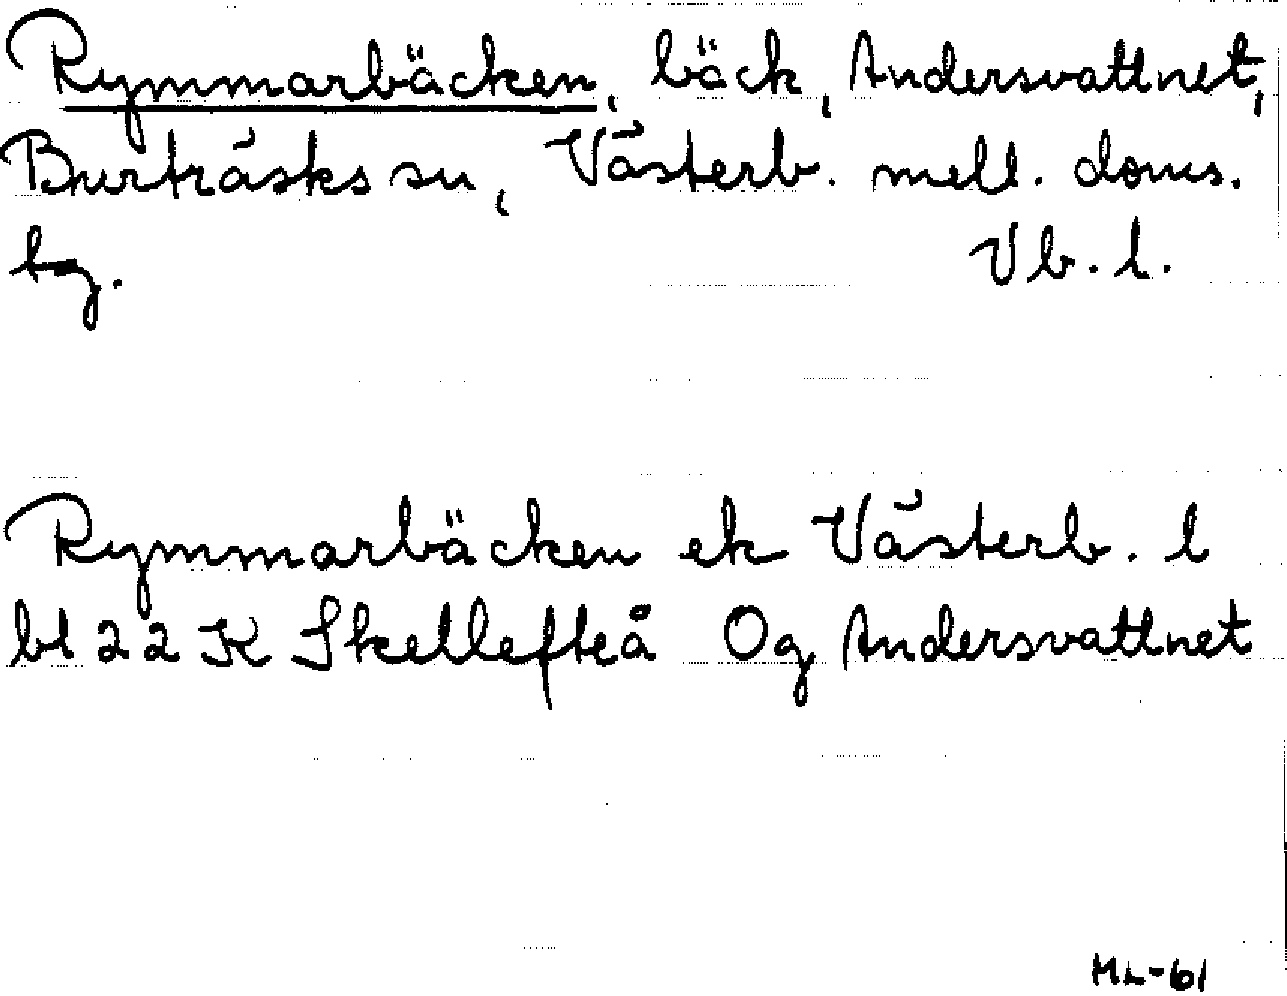 Rymmarbäcken, bäck, Andersvattnet,
Burträsks sn, Västerb. mell. doms.
bg. Vb. l.
Rymmarbäcken ek Västerb. l
bl 22 K Skellefteå Og Andersvattnet
ML-61